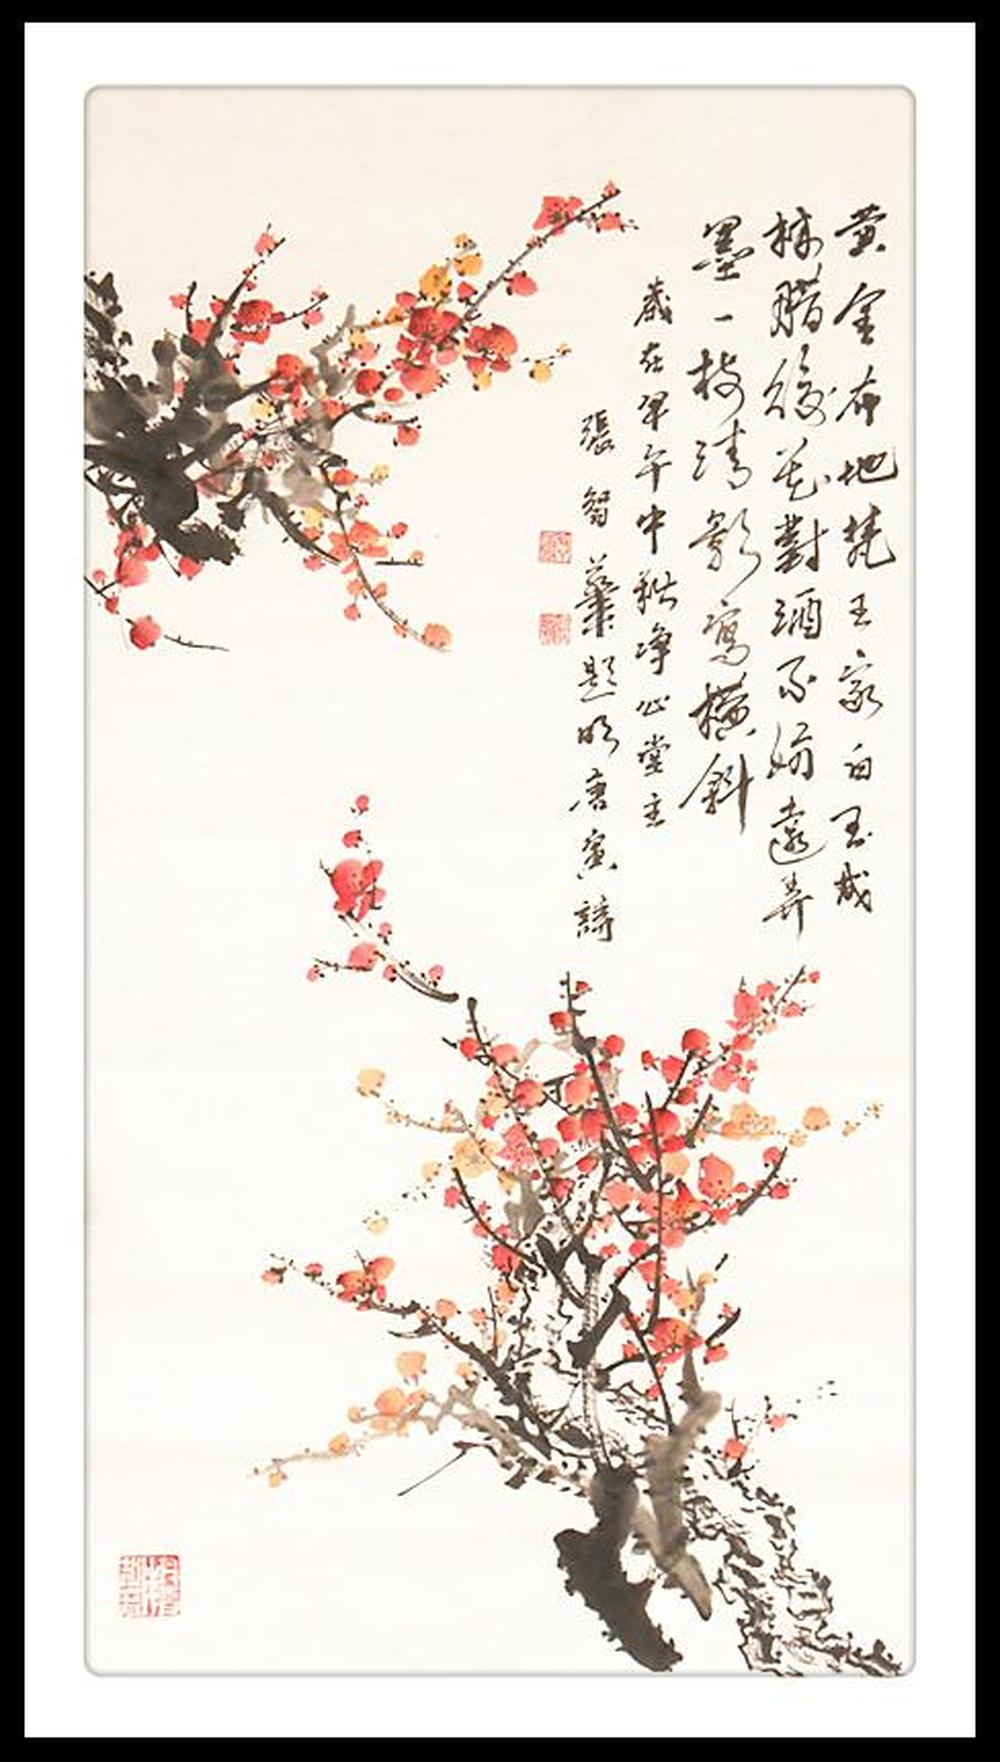 黄金布地梵王家白玉成
林腊後花對酒不妨還弄
墨一枝清影寫橫斜
歲在甲午中秋净心堂主
張華題明唐寅詩